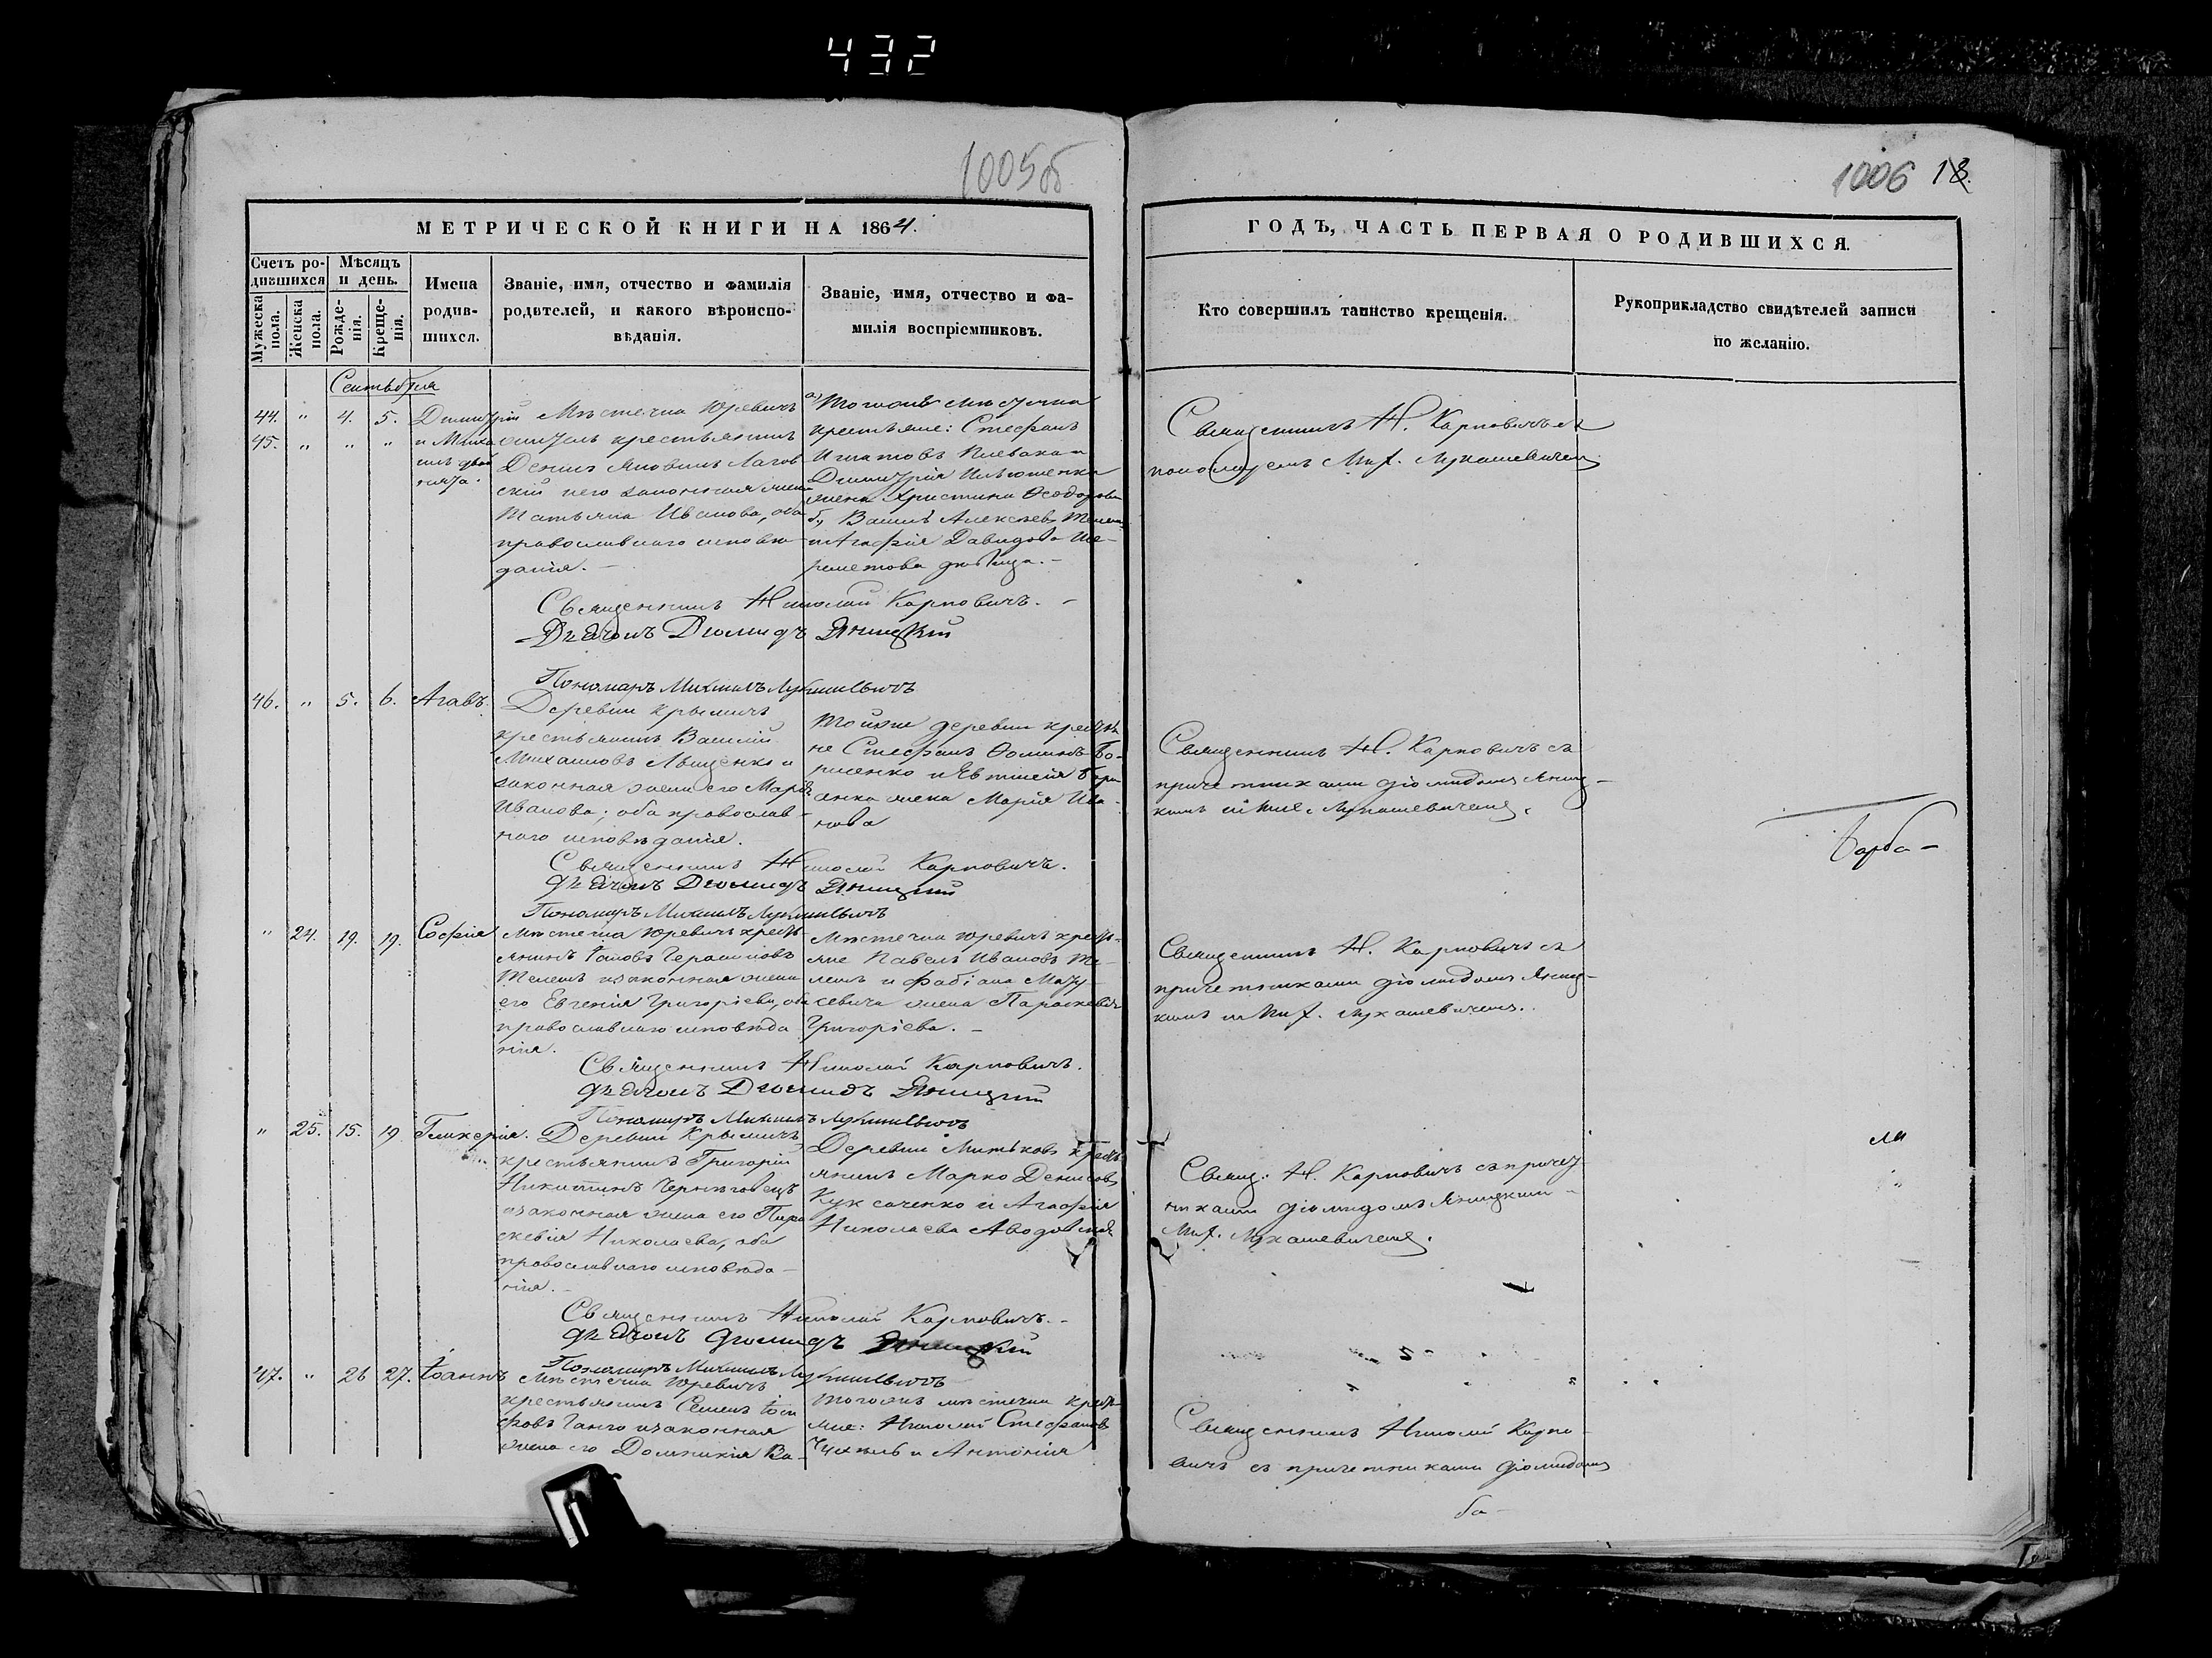 432
1005об
1006 18.
МЕТРИЧЕСКОЙ КНИГИ НА 1864.
ГОДЪ, ЧАСТЬ ПЕРВАЯ О РОДИВШИХСЯ.
Счетъ родившихся
Мѣсяцъ и день.
Мужеска пола.
Женска пола.
Рожденія.
Крещенія.
Имена родившихся.
Званіе, имя, отчество и фамилія
родителей, и какого вѣроиспо-
вѣданія.
Званіе, имя, отчество и фа-
милія воспріемниковъ.
Кто совершилъ таинство крещенія.
Рукоприкладство свидѣтелей записи
по желанію.
Сентября
44. " 4. 5. Димитрій
45. " " "
Мѣстечка Юревичъ
крестьянинъ
Денисъ
скій и его законная жена
Татьяна Иванова, оба
православнаго исповѣ-
данія.
а) Тогоже мѣстечка
крестьяне: Стефанъ
Игнатовъ
Димитрія
жена Христина Ѳеодорова
б, Василъ Алексѣевъ
и Агафія Давидова Ше-
реметова дѣвица.
Священникъ Н. Карповичъ съ
пономаремъ Мих. Лукашевичемъ
Священникъ Николай Карповичъ.
Дьячокъ Діомидъ Яницкій
Пономарь Михаилъ Лукашевичъ
46. " 5. 6. Агавъ.
Деревни Крышичъ
крестьянинъ Василій
Михаиловъ Лищенко и
законная жена его Марѳа
Иванова; оба православ-
наго исповѣданія.
Тойже деревни крестья-
не Стефанъ Ѳоминъ Бо-
рисенко и Евтихія
жена Марія Ива-
нова
Священникъ Н. Карповичъ съ
причетниками Діомидомъ Яниц-
кимъ и Мих. Лукашевичемъ.
Священникъ Николай Карповичъ.
Дьячокъ Діомидъ Яницкій
Пономарь Михаилъ Лукашевичъ
" 24. 19. 19. Софія
Мѣстечка Юревичъ кресть-
янинъ Іаковъ Герасимовъ
Телешъ и законная жена
его Евгенія Григоріева, оба
православнаго исповѣда-
нія.
Мѣстечка Юревичъ кресть-
яне Павелъ Ивановъ Те-
лешъ и Фабіана Мазу-
кевича жена Параскевія
Григоріева.
Священникъ Н. Карповичъ съ
причетниками Діомидомъ Яниц-
кимъ и Мих. Лукашевичемъ.
Священникъ Николай Карповичъ.
Дьячокъ Діомидъ Яницкій
Пономарь Михаилъ Лукашевичъ
" 25. 15. 19 Гликерія.
Деревни Крышичъ
крестьянинъ Григорій
Никитинъ Черниговецъ
и законная жена его Пара-
скевія Николаева, оба
православнаго исповѣда-
нія.
Деревни Митьковъ кресть-
янинъ Марко Денисовъ
и Агафія
Николаева
Свящ: Н. Карповичъ съ причет-
никами Діомидомъ Яницкимъ
Мих. Лукашевичемъ.
Священникъ Николай Карповичъ.
Дьячокъ Діомидъ Яницкій
Пономарь Михаилъ Лукашевичъ
47. " 26 27. Іоаннъ
Мѣстечка Юревичъ
крестьянинъ Семенъ Іоси-
фовъ и законная
жена его Домникія Ва-
Тогоже мѣстечка кресть-
яне: Николай Стефановъ
и Антонія
Священникъ Николай Карпо-
вичъ съ причетниками Діомидомъ